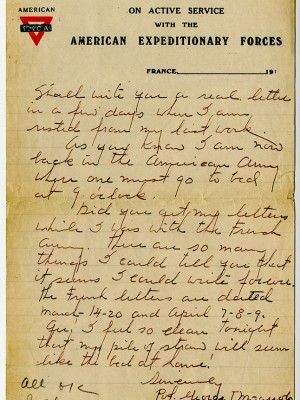 AMERICAN
Y.M.C.A.
ON ACTIVE SERVICE
WITH THE
AMERICAN EXPEDITIONARY FORCES
FRANCE, 191
Shall write you a real letter
in a few days when I am
rested from my last work.
As you know I am now
back in the American Army
where one must go to bed
at 9 o'clock.
Did you get my letters
while I was with the french
army. There are so many
things I could tell you that
it seems I could write forever.
The french letters are dated
march-14-20 and April 7-8-9.
Gee, I feel so clean tonight
that my pile of straw will seem
like the bed at home.
Sincerely
all OK Pvt. George